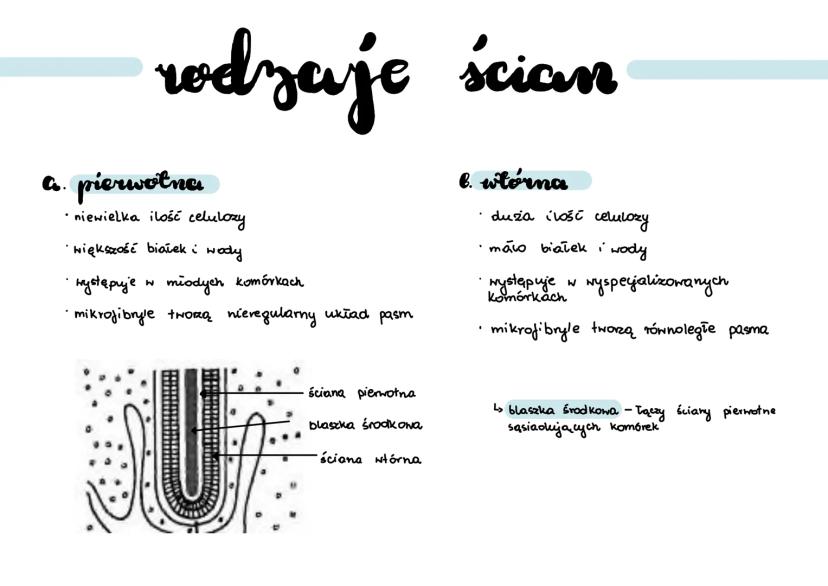 rodzaje ścian
a. pierwotna
· niewielka ilość celulozy
· większość białek i wody
· występuje w młodych komórkach
· mikrofibryle tworzą nieregularny układ pasm
ściana pierwotna
blaszka środkowa
ściana wtórna
b. wtórna
· duża ilość celulozy
· mało białek i wody
· występuje w wyspecjalizowanych
komórkach
· mikrofibryle tworzą równoległe pasma
↳ blaszka środkowa – łączy ściany pierwotne
sąsiadujących komórek